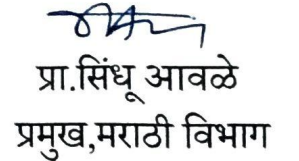 प्रा.सिंधू आवळे
प्रमुख,मराठी विभाग